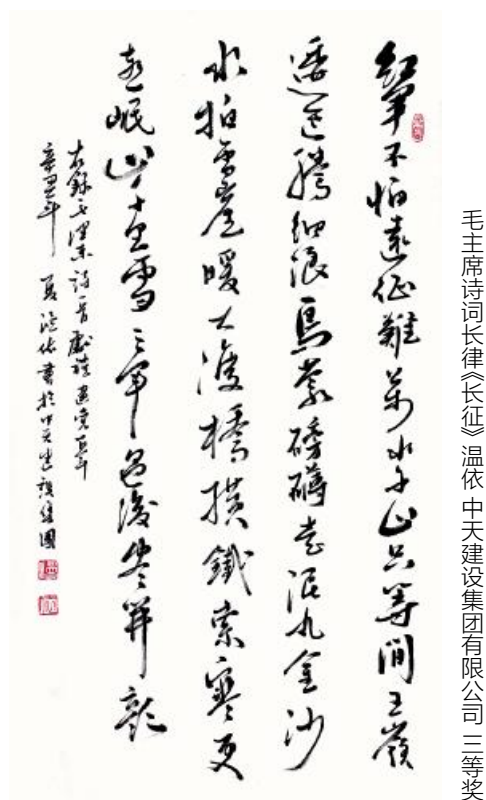 紅軍不怕遠征難萬水千山只等閒五嶺
逶迤騰細浪烏蒙磅礴走泥丸金沙
水拍雲崖暖大渡橋橫鐵索寒更
喜岷山千里雪三軍過後盡開顏
右録毛澤東詩一首獻禮建党百年
辛丑年夏溫依書於中天建設集團
毛主席诗词长律《长征》 温依 中天建设集团有限公司 三等奖